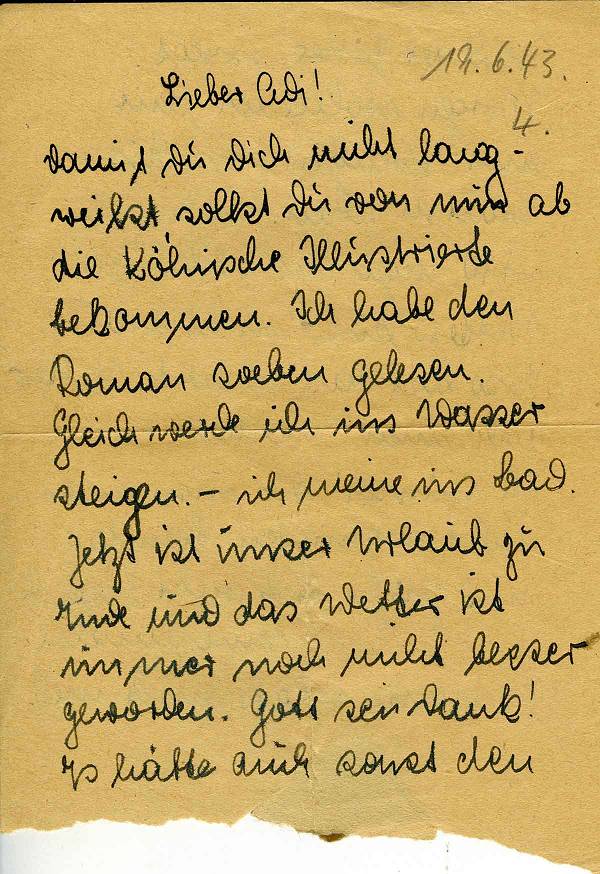 18.6.43.
Lieber Adi!
4.
Damit Du Dich nicht lang-
weilst, sollst Du von nun ab
die Kölnische Illustrierte
bekommen. Ich habe den
Roman soeben gelesen.
Gleich werde ich ins Wasser
steigen. – ich meine ins Bad.
Jetzt ist unser Urlaub zu
Ende und das Wetter ist
immer noch nicht besser
geworden. Gott sei Dank!
Es hätte auch sonst den